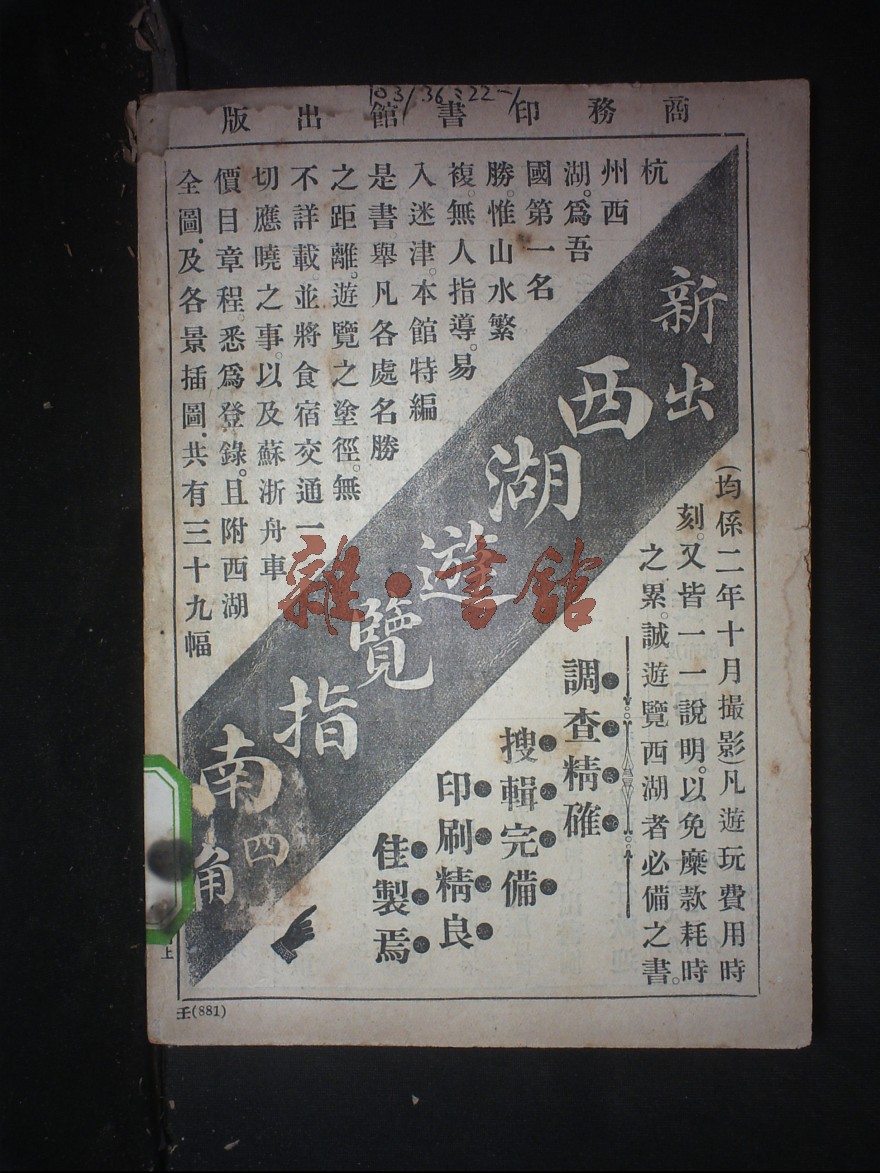 103/36:22-1
商務印書館出版
新出
西湖遊覽指南
四角
杭
州西
湖。為吾
國第一名
勝。惟山水繁
複。無人指導。易
入迷津。本館特編
是書。舉凡各處名勝
之距離。遊覽之塗徑。無
不詳載。並將食宿交通一
切應曉之事。以及蘇浙舟車
價目章程。悉為登錄。且附西湖
全圖。及各景插圖。共有三十九幅
(均係二年十月撮影)凡遊玩費用時
刻。又皆一一說明。以免糜款耗時
之累。誠遊覽西湖者必備之書。
調查精確
搜輯完備
印刷精良
佳製焉
雜·書館
上
壬(881)